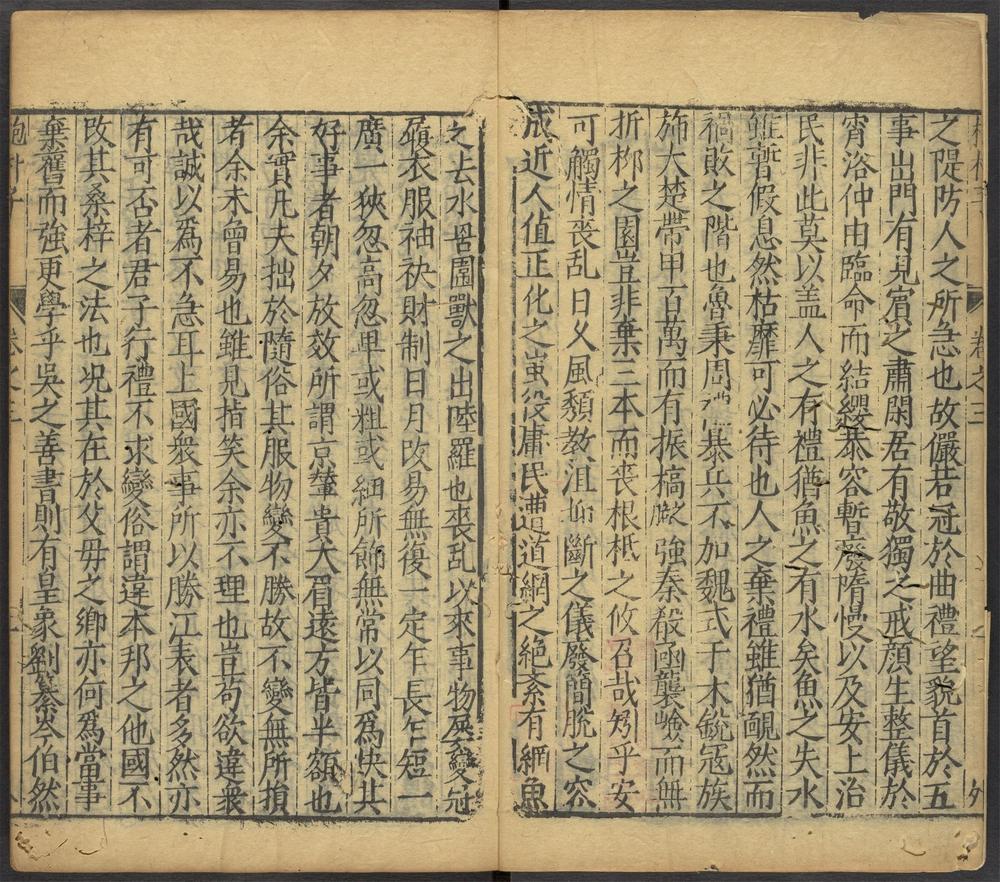 之隄防人之所急也故儼若冠於曲禮望貌首於五
事出門有見賔之肅閑居有敬獨之戒顔生整儀於
宵洛仲由臨命而結纓恭容暫廢隋慢以及安上治
民非此莫以盖人之有禮猶魚之有水矣魚之失水
雖暫假息然枯靡可必待也人之棄禮雖猶靦然而
禍敗之階也魯秉周禮暴兵不加魏式于木銳寇族
斾大楚帶甲百萬而有振槁強秦殽函襲嶮而無
折柳之園豈非棄三本而䘮根柢之攸召哉矧乎安
可觸情䘮乱日乆風頽教沮斷之儀發簡脫之容
成近人值正化之蚩役庸民遭道網之絶紊有網魚
之去水罟圍獸之出陸羅也䘮乱以來事物屢變冠
履衣服袖袂財制日月攺易無復一定乍長乍短一
廣一狹忽高忽卑或粗或細所飾無常以同為快其
好事者朝夕放效所謂京輦貴大眉逺方皆半額也
余實凡夫拙於隨俗其服物變不勝故不變無所損
者余未曾易也雖見指笑余亦不理也豈苟欲違衆
哉誠以爲不急耳上國衆事所以勝江表者多然亦
有可否者君子行禮不求變俗謂違本邦之他國不
攺其桑梓之法也况其在於父母之鄉亦何爲當事
棄舊而強更學乎吳之善書則有皇象劉纂岑伯然
卷之三
外